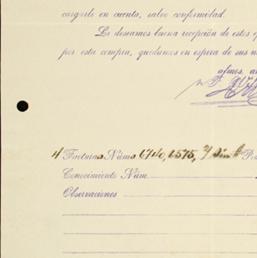 cargarle en cuenta, salvo conformidad.
Le deseamos buena recepción de estos e
por esta compra, quedamos en espera de sus n
afmos. a
Factura Núm. 6740, 6575,
Conocimiento Núm.
Observaciones